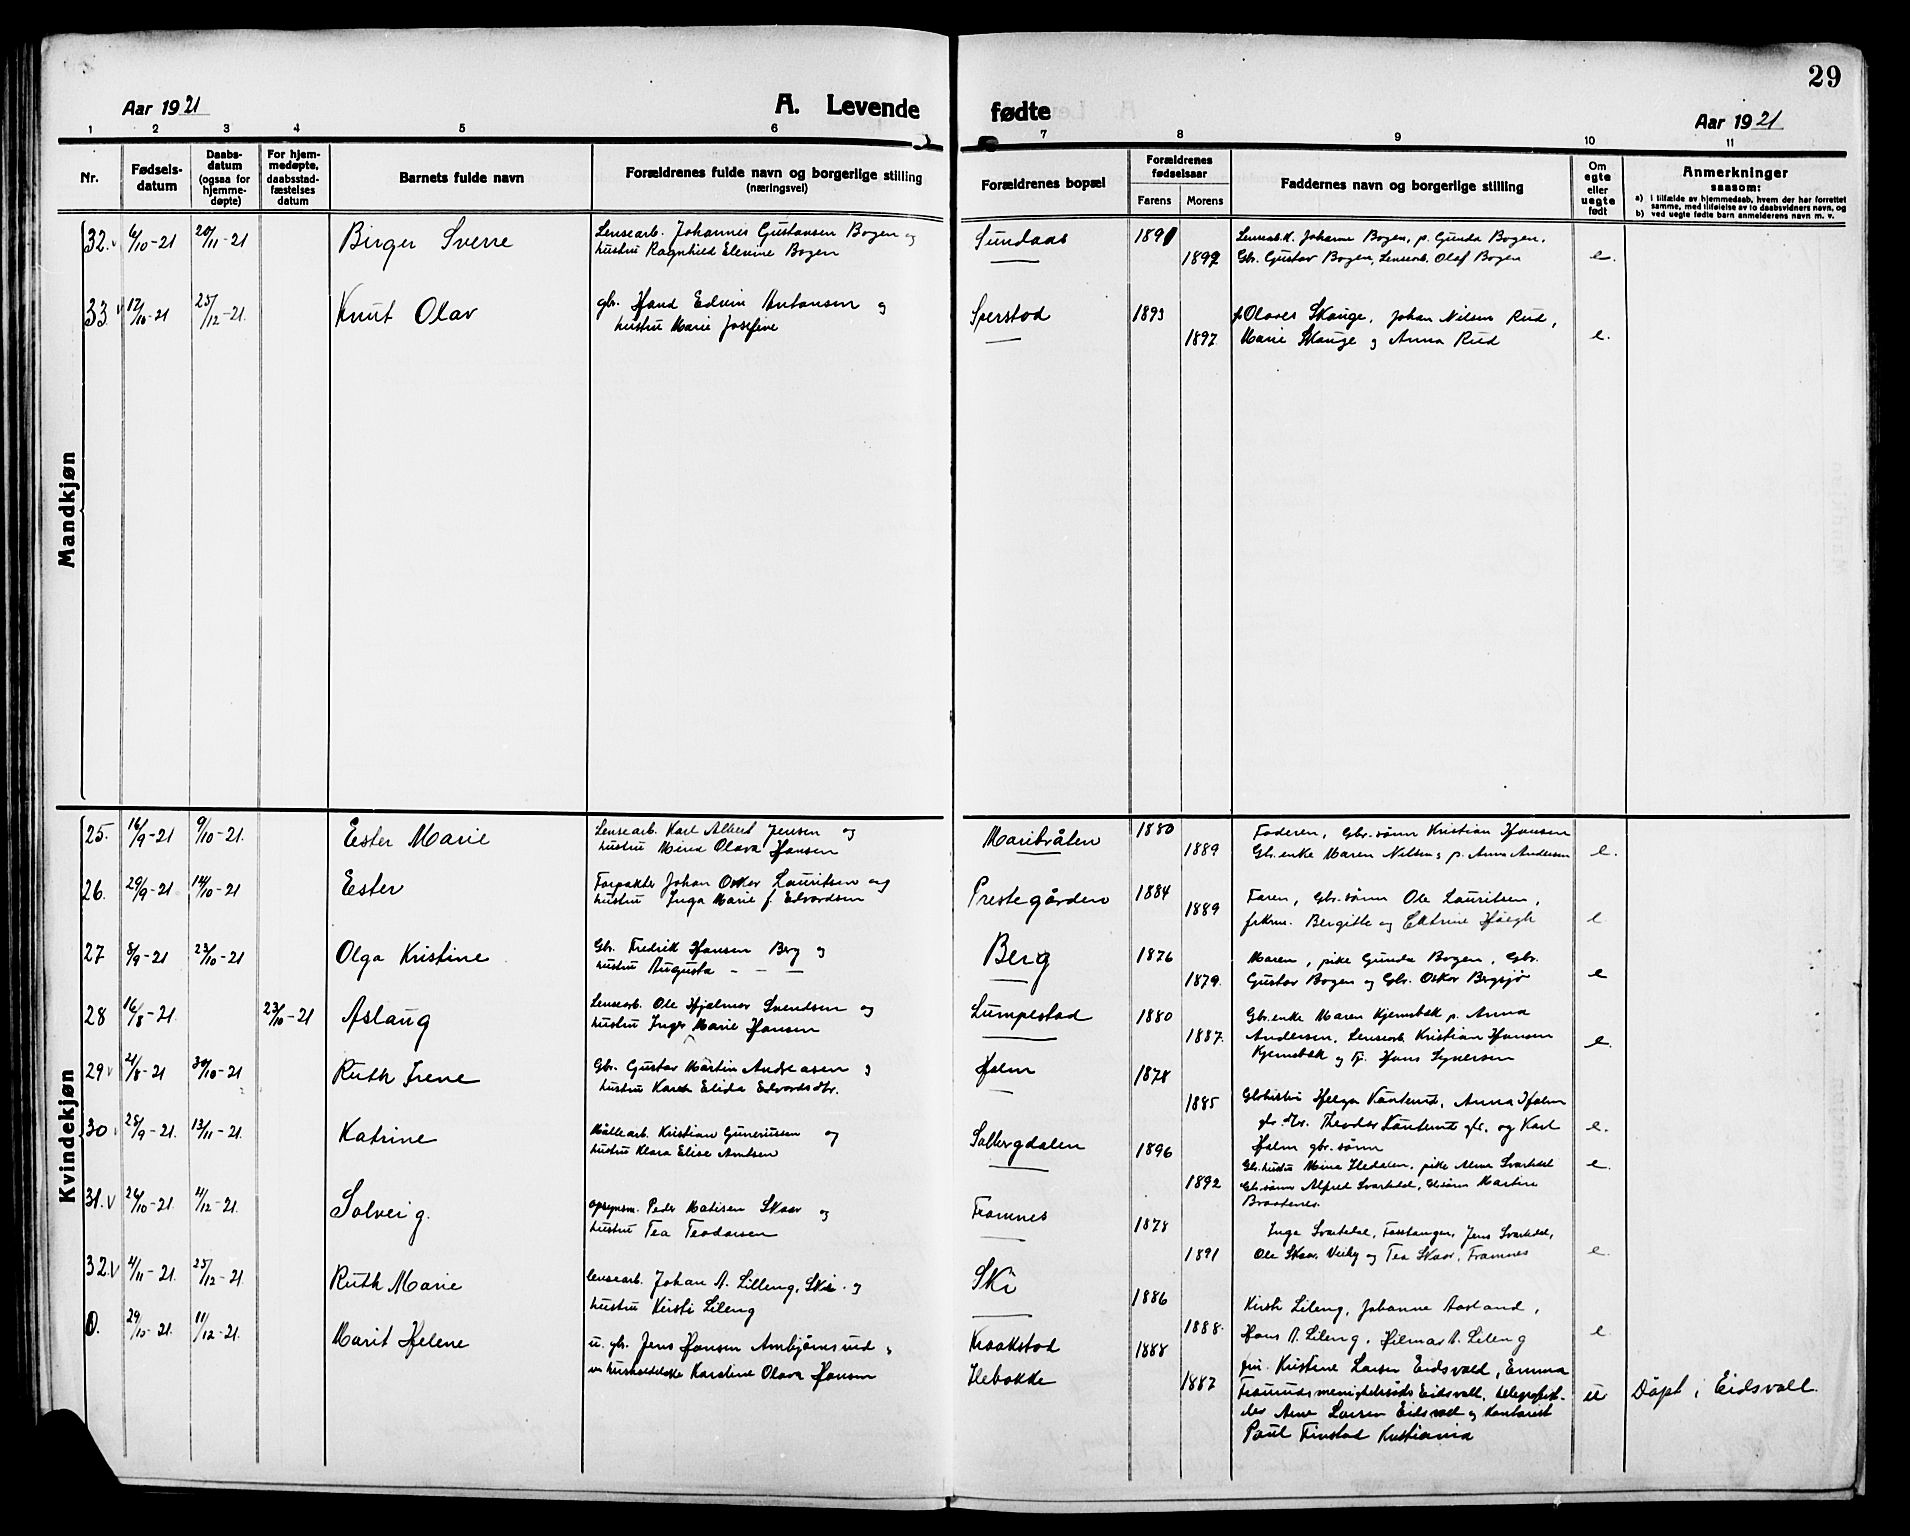 29
Aar 1921
A. Levende
fødte
Aar 1921
1 2 3 4 5 6 7 8 9 10 11
Nr.
Fødsels-
datum
Daabs-
datum
(ogsaa for
hjemme-
døpte)
For hjem-
medøpte,
daabsstad-
fæstelses
datum
Barnets fulde navn
Forældrenes fulde navn og borgerlige stilling
(næringsvei)
Forældrenes bopæl
Forældrenes
fødselsaar
Farens Morens
Faddernes navn og borgerlige stilling
Om
egte
eller
uegte
født
Anmerkninger
saasom:
a) i tilfælde av hjemmedaab, hvem der har forrettet
samme, med tilføielse av to daabsvidners navn, og
b) ved uegte fødte barn anmelderens navn m. v.
Mandkjøn
32. 6/10-21 20/11-21 Birger Sverre
Lensearb. Johannes Gustavsen Bogen og
hustru Ragnhild Elevine Bogen
Sundaas 1891 1892
Lensearb.k. Johanne Bogen, p. Gunda Bogen,
Gbr. Gustav Bogen, Lensearb. Olaf Bogen e.
33. 12/10-21 25/12-21. Knut Olav
gbr. Hans Edvin Antonsen og
hustru Marie Josefine
Sperstad 1893 1897
Olaves Skauge, Johan Nilsen Rud,
Marie Skauge og Anna Rud e.
Kvindekjøn
25. 16/9-21 9/10-21. Ester Marie
Lensearb. Karl Albert Jensen og
hustru Olava Hansen
Maribråten 1880 1889
Faderen, Gbr.sønn Kristian Hansen
Gbr.enke Maren Nilsen, p. Anna Andersen e.
26. 29/9-21 14/10-21 Ester
Forpakter Johan Oskar Lauritsen og
hustru Inga Marie f. Edvardsen
Prestegården 1884 1889
Faren, Gbr.sønn Ole Lauritsen,
frknr. Bergitte og Høegh e
27 8/9-21 23/10-21 Olga Kristine
Gbr. Fredrik Hansen Berg og
hustru Augusta - - -
Berg 1876 1879.
Moren, pike Gunda Bogen, Gbr.
Gustav Bogen og Gbr. Oskar Bergsjø e
28 16/8-21 23/10-21 Aslaug
Lensearb. Ole Hjalmar Svendsen og
hustru Inger Marie Hansen
Lumpestad 1880 1887.
Gbr.enke Maren Kjemsbæk p. Anna
Andersen, Lensearb. Kristian Hansen
Kjemsbæk og Hans Syversen e.
29 21/8-21 30/10-21 Ruth Irene
Gbr. Gustav Martin Andreasen og
hustru Karen Elida Edvardsdtr.
Holm 1878 1885
Helga Anna Holm
Theodor og Karl
Holm gbr.sønn e.
30 28/9-21. 13/11-21. Katrine
Møllearb. Kristian Gunerius­sen og
hustru Klara Elise Arntsen
Solbergdalen 1896 1892
Gbr.hustru Mina Hedalen, pike Alma Svartedal
Gbr.sønn Alfred Svartdal, Martin
Braatenes. e.
31. 26/10-21. 4/12-21. Solveig.
opsynsm. Peder Matisen Skaar og
hustru Tea Teodorsen
Framnes 1878 1891
Inga Svartedal, Fosstangen, Jens Svartdal,
Ole Skaar, Veiby og Tea Skaar, Framnes e.
32. 4/11-21. 25/12-21. Ruth Marie
lensearb. Johan A. Lilleng, Ski. og
hustru Kirsti Lileng
Ski 1886 1888.
Kirsti Lileng, Johanne Aasland,
Hans A. Lileng, Hilmar A. Lileng e
0. 11/12-21. Marit Helene
u. gbr. Jens Hansen Ambjørnsrud,
husholderske Karoline Olava Hansen
Kraakstad 1888
Hebække 1887
fru. Kristine Larsen Eidsvold, Emma
Eidsvoll, telegrafist-
Arne Larsen Eidsvold og Kontorist
Paul Finstad Kristiania
u Døpt i Eidsvoll.